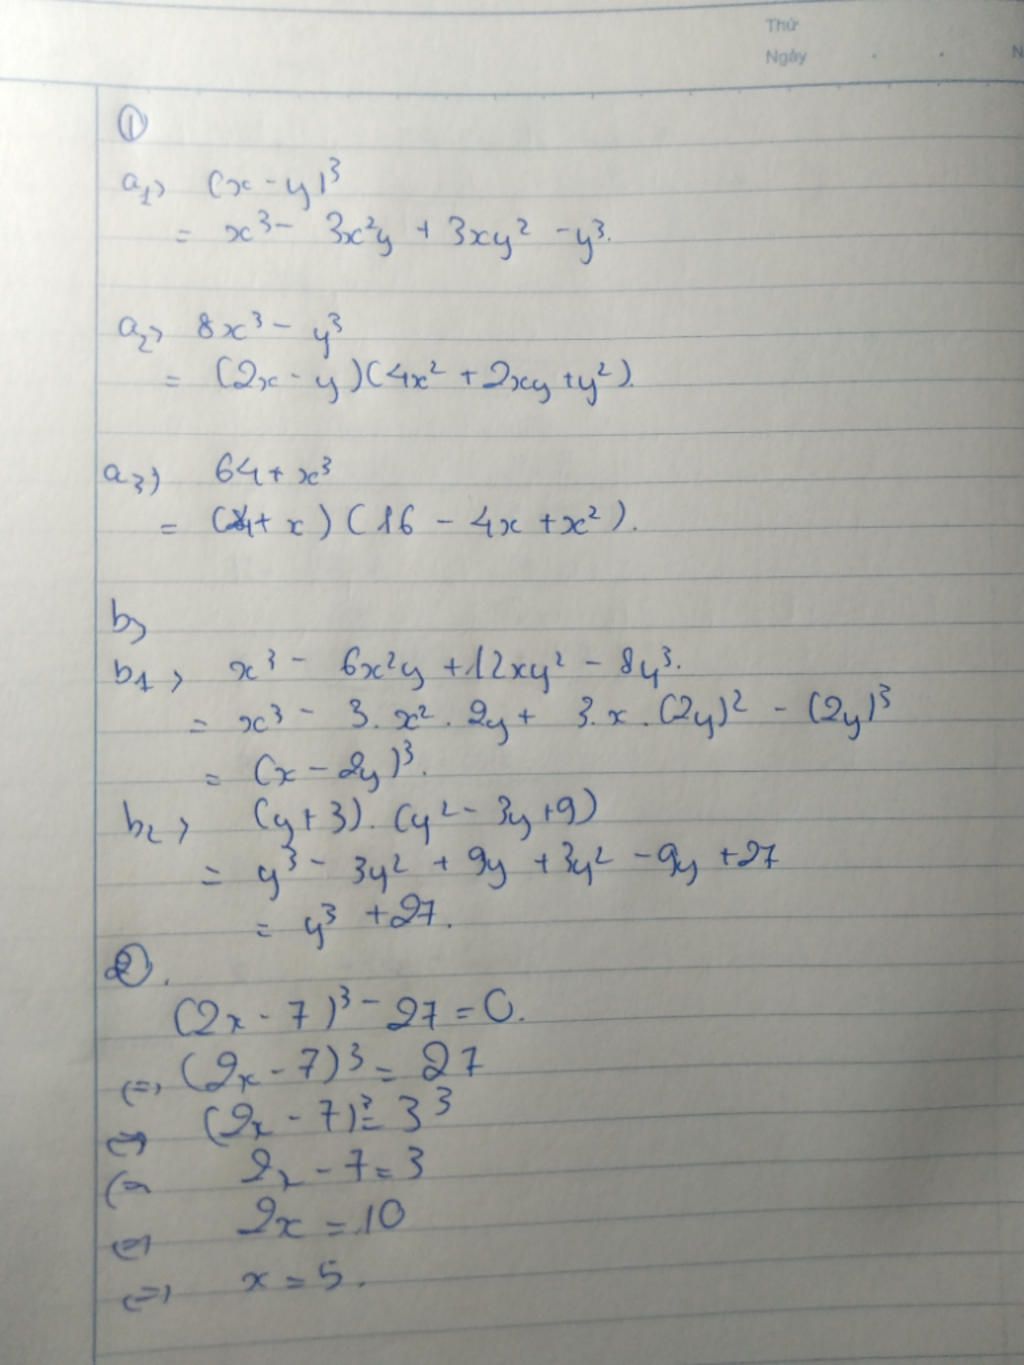 Thứ
Ngày
N
①
a₁> (x - y)³
= x³ - 3x²y + 3xy² - y³.
a₂> 8x³ - y³
= (2x - y)(4x² + 2xy + y²).
a₃) 64 + x³
= (4 + x)(16 - 4x + x²).
b>
b₁> x³ - 6x²y + 12xy² - 8y³.
= x³ - 3.x².2y + 3.x.(2y)² - (2y)³
= (x - 2y)³.
b₂> (y + 3).(y² - 3y + 9)
= y³ - 3y² + 9y + 3y² - 9y + 27
= y³ + 27.
②.
(2x - 7)³ - 27 = 0.
(=) (2x - 7)³ = 27
(=) (2x - 7)³ = 3³
(=) 2x - 7 = 3
(=) 2x = 10
(=) x = 5.